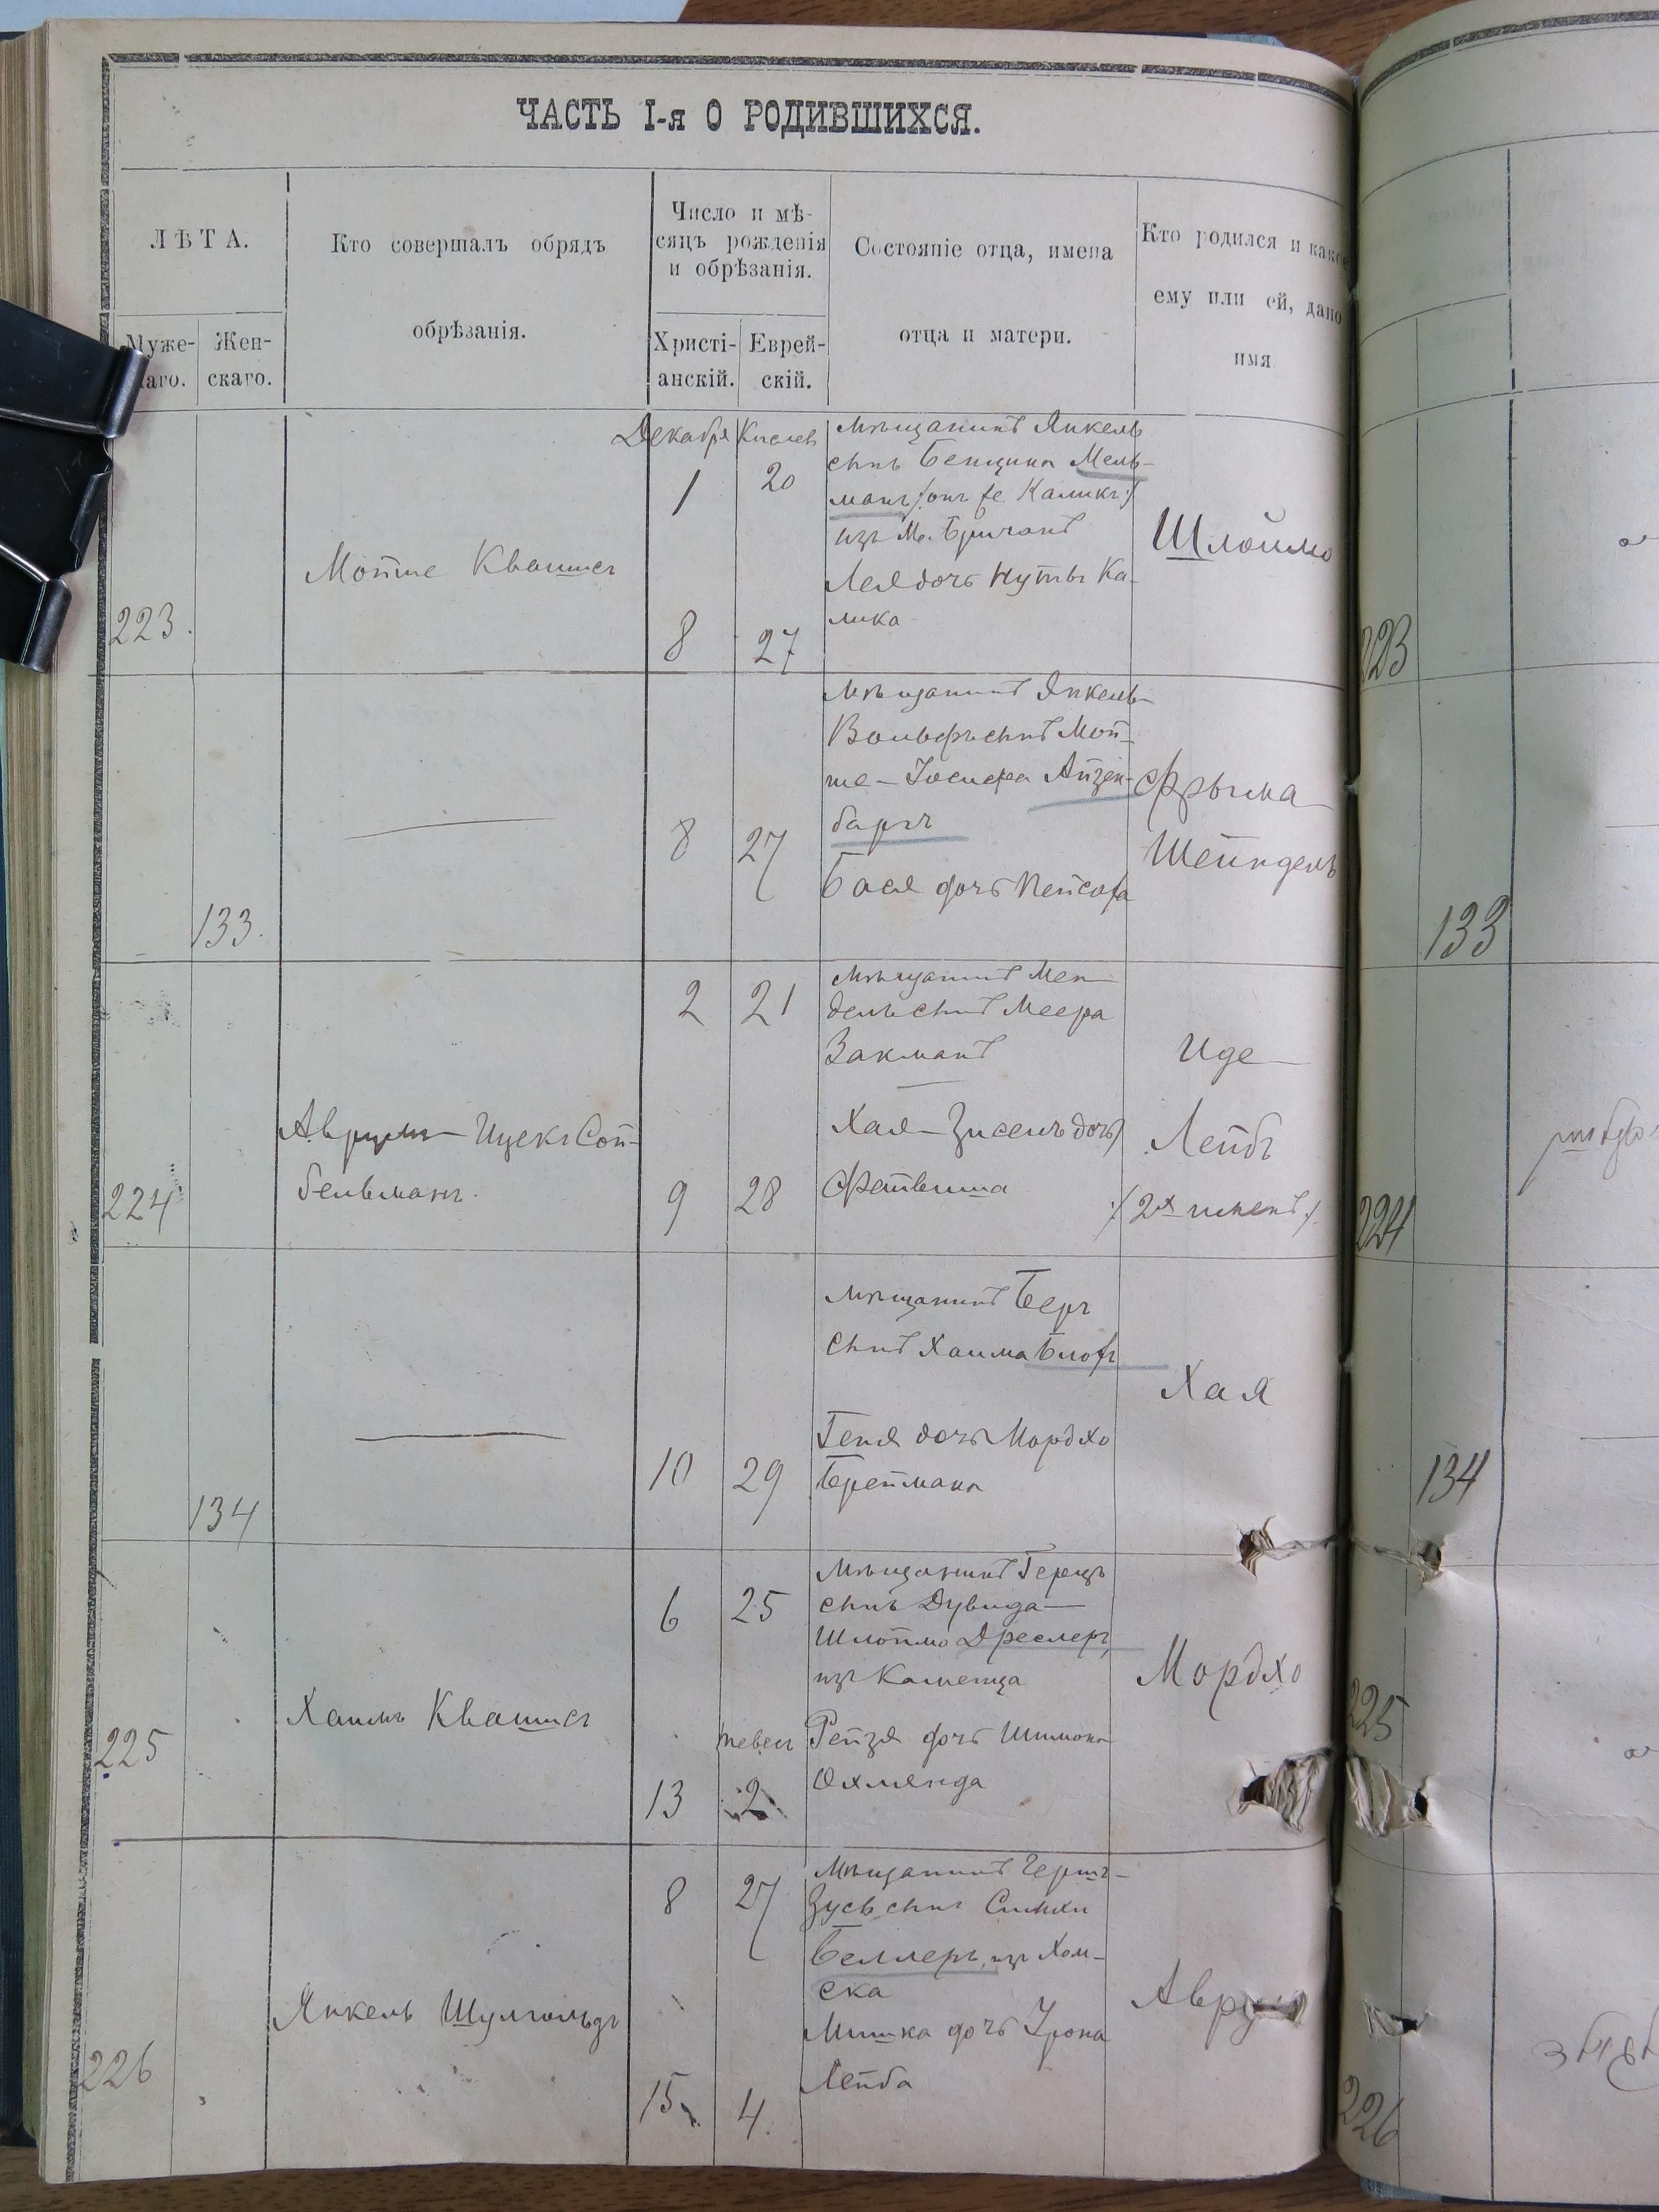 ЧАСТЬ I-я О РОДИВШИХСЯ.
ЛѢТА.
Муже-
каго.
Жен-
скаго.
Кто совершалъ обрядъ
обрѣзанія.
Число и мѣ-
сяцъ рожденія
и обрѣзанія.
Христі-
анскій.
Еврей-
скій.
Состояніе отца, имена
отца и матери.
Кто родился и какое
ему или ей, дано
имя
223.
Мотте Квашисъ
Декабря
1
8
Кислев
20
27
Мѣщанинъ Янкель
сынъ Бенциона Мель-
манъ /:онъ же Каликъ:/
изъ М. Бричанъ
Лея дочь Нуты Ка-
лика
Шлоймо
223
133.
8
27
Мѣщанинъ Янкель-
Вольфъ сынъ Мой-
ше-Іосифа Айзен-
бергъ
Бася дочь Пейсаха
Фрыма-
Шейндель
133
224
Аврумъ-Ицекъ Сой-
бельманъ.
2
9
21
28
Мѣщанинъ Мен-
дель сынъ Меера
Закманъ
Хая-Зисель дочь
Файвиша
Иде-
Лейбъ
/:2х именъ:/
224
134
10
29
Мѣщанинъ Беръ
сынъ Хаима
Геня дочь Мордхо
Брейтмана
Хая
134
225
Хаимъ Квашисъ
6
13
25
тевеш
2
Мѣщанинъ Герцъ
сынъ Дувида-
Шлоймо Дреслеръ,
изъ Каменца
Рейзя дочь Шимона
Охмянда
Мордхо
225
226
Янкель Шулгольдъ
8
15
27
4.
Мѣщанинъ Гершъ-
Зусь сынъ Симхи
Беллеръ, изъ Хом-
ска
Мишка дочь Урона
Лейба
Аврум
226